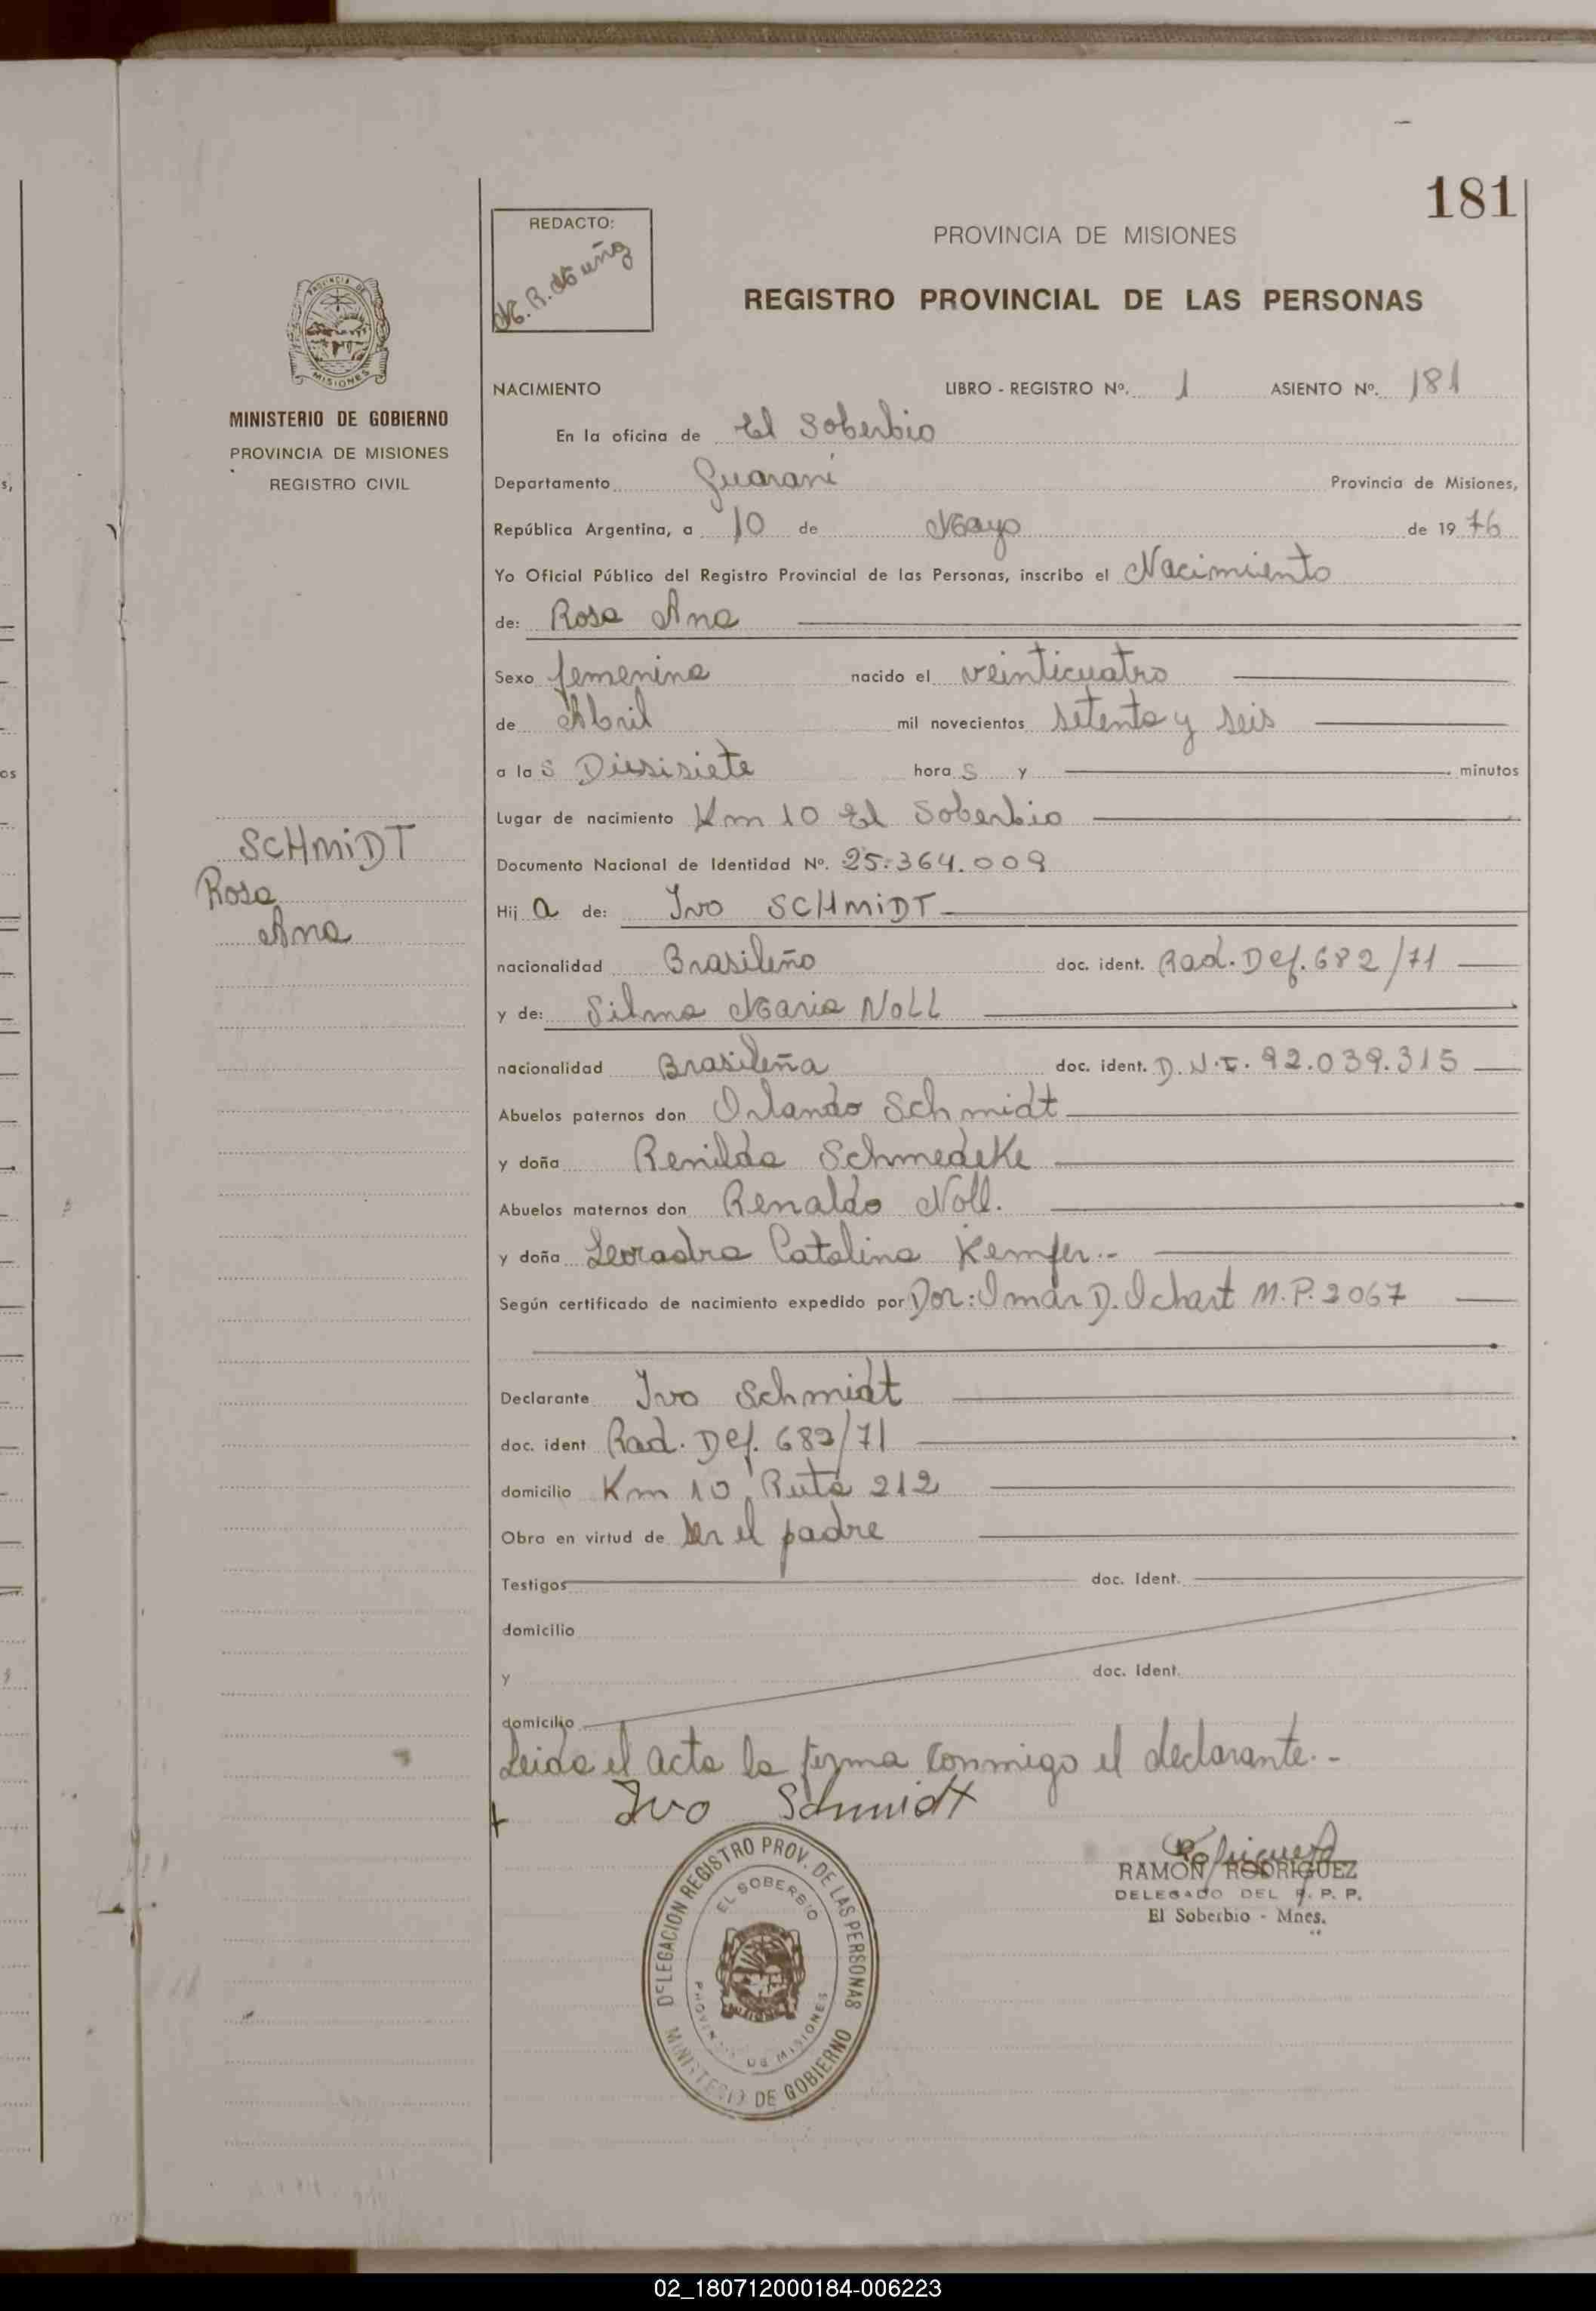 181
REDACTO:
M. R. Muñoz
PROVINCIA DE MISIONES
REGISTRO PROVINCIAL DE LAS PERSONAS
PROVINCIA DE
MISIONES
MINISTERIO DE GOBIERNO
PROVINCIA DE MISIONES
REGISTRO CIVIL
NACIMIENTO LIBRO - REGISTRO Nº. 1 ASIENTO Nº. 181
En la oficina de El Soberbio
Departamento Guaraní Provincia de Misiones,
República Argentina, a 10 de Mayo de 1976
Yo Oficial Público del Registro Provincial de las Personas, inscribo el Nacimiento
de: Rosa Ana
Sexo femenina nacido el veinticuatro
de Abril mil novecientos setenta y seis
a las Diesisiete horas y minutos
Lugar de nacimiento Km 10 El Soberbio
Documento Nacional de Identidad Nº. 25.364.009
SCHMIDT
Rosa
Ana
Hija de: Ivo SCHMIDT
nacionalidad Brasileño doc. ident. Rad. Def. 682/71
y de: Silma Maria NOLL
nacionalidad Brasileña doc. ident. D.N.I. 92.039.315
Abuelos paternos don Orlando Schmidt
y doña Renilda Schmedeke
Abuelos maternos don Renaldo Noll.
y doña Catalina Kemfer.-
Según certificado de nacimiento expedido por Dor: Omar D. Ochart M.P. 2067
Declarante Ivo Schmidt
doc. ident Rad. Def. 682/71
domicilio Km 10 Ruta 212
Obra en virtud de ser el padre
Testigos doc. Ident.
domicilio
y doc. Ident.
domicilio
Leida el acta la firma conmigo el declarante.-
Ivo Schmidt
Rodriguez
RAMON RODRIGUEZ
DELEGADO DEL R. P. P.
El Soberbio - Mnes.
DELEGACION REGISTRO PROV. DE LAS PERSONAS
EL SOBERBIO
PROVINCIA DE MISIONES
MINISTERIO DE GOBIERNO
02_180712000184-006223